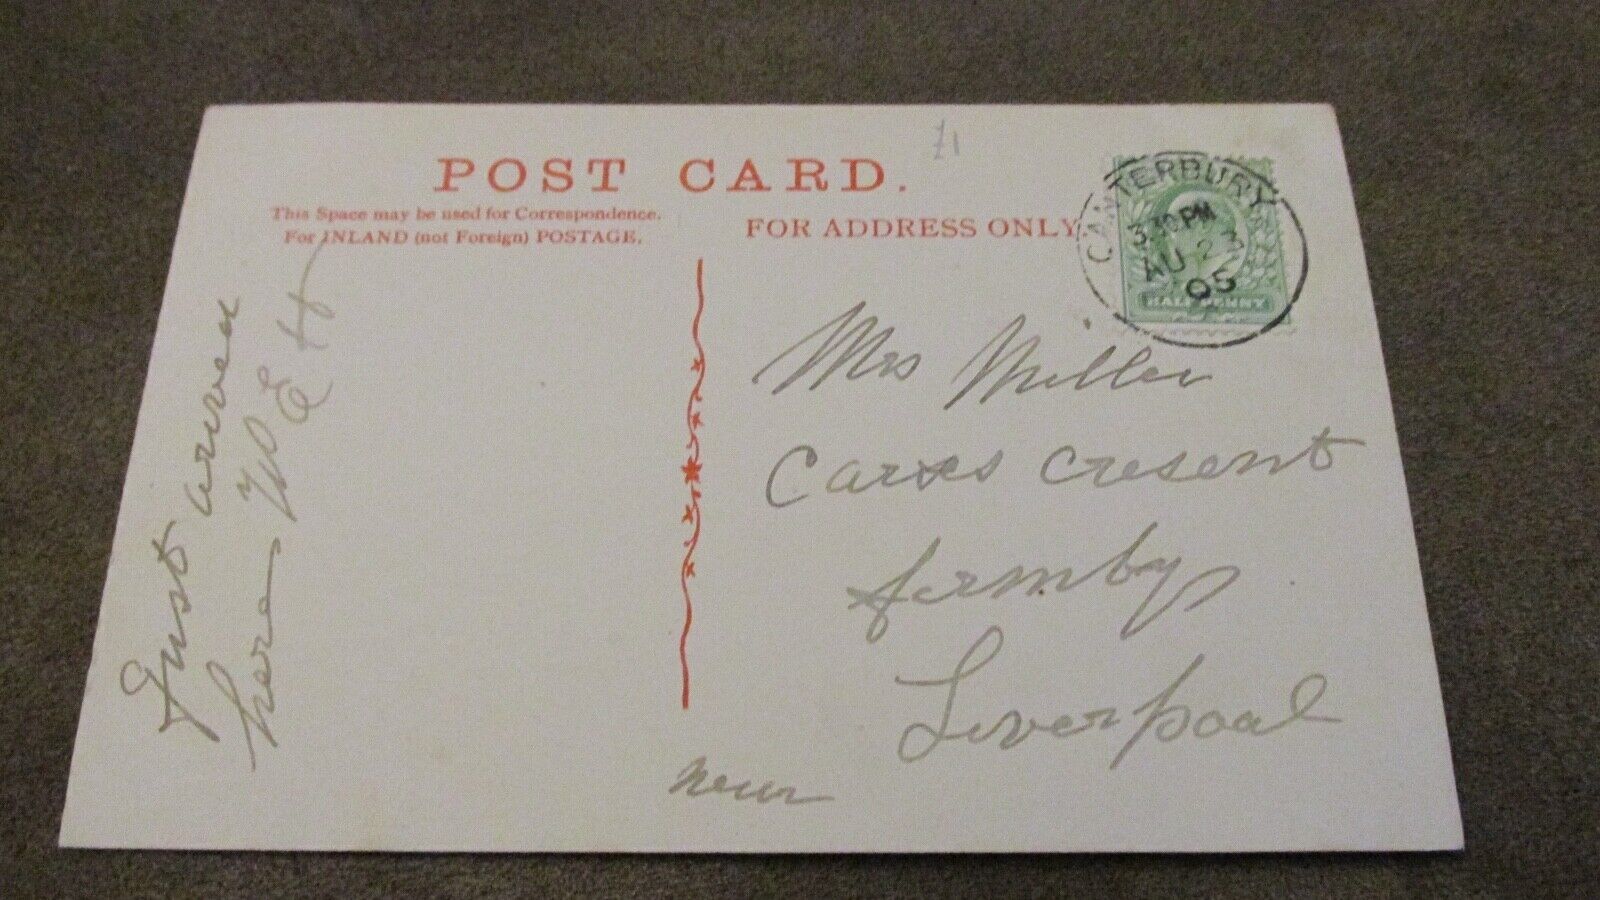 £1
POST CARD.
This Space may be used for Correspondence.
For INLAND (not Foreign) POSTAGE.
FOR ADDRESS ONLY
CANTERBURY
3.30 PM
AU 23
05
HALF PENNY
Just arived
here W E H
Mrs Miller
Carrs Cresent
formby
Liverpool
near